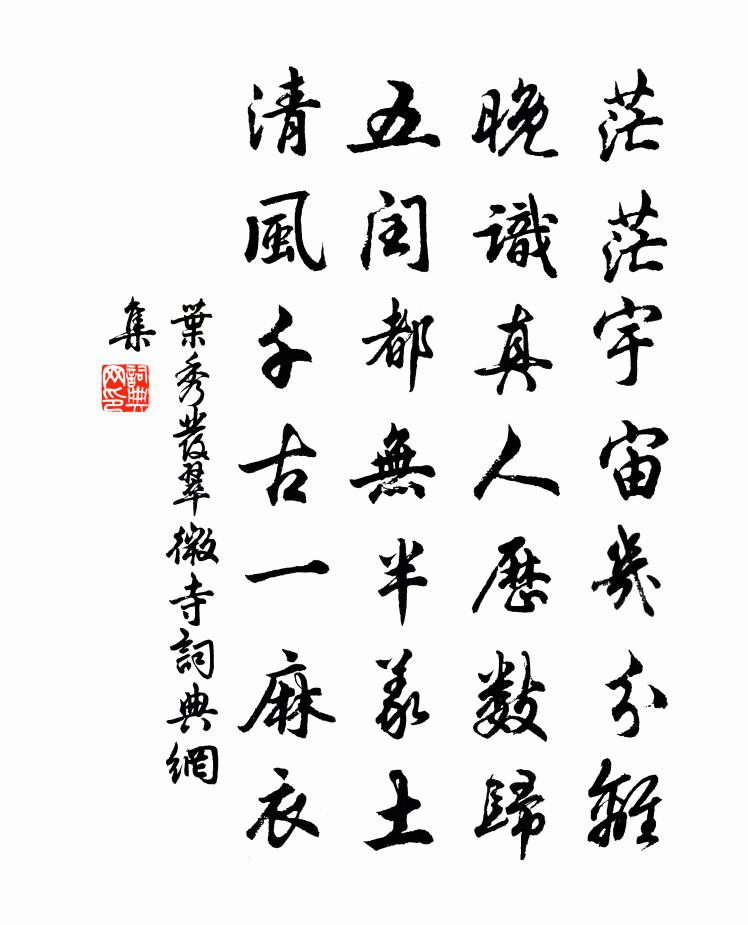 茫茫宇宙幾分離
晚識真人歷數歸
五閏都無半彖土
清風千古一麻衣
葉秀發翠微寺詞典網
集
詞典網印